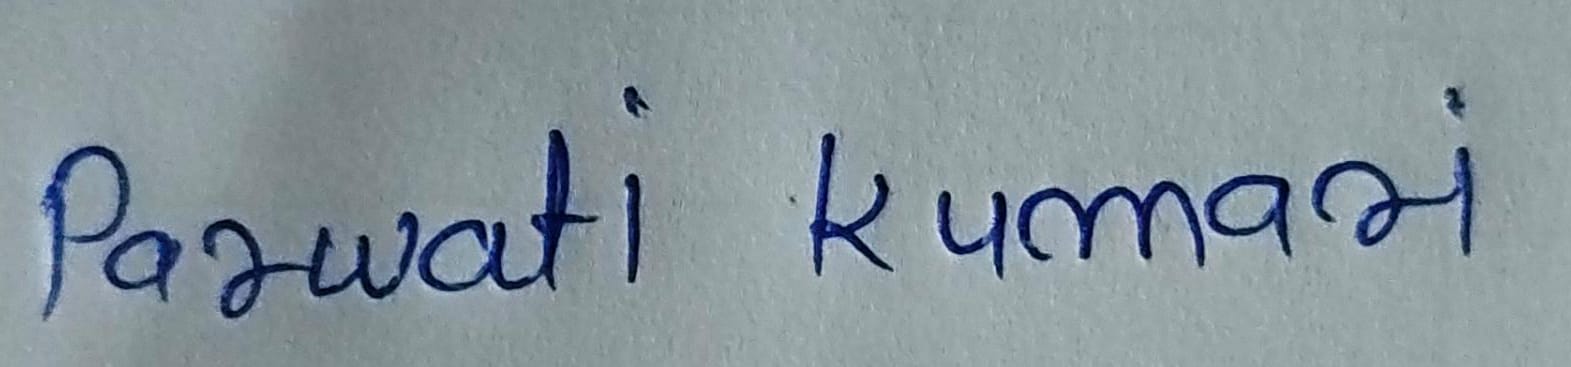 Parwati kumari